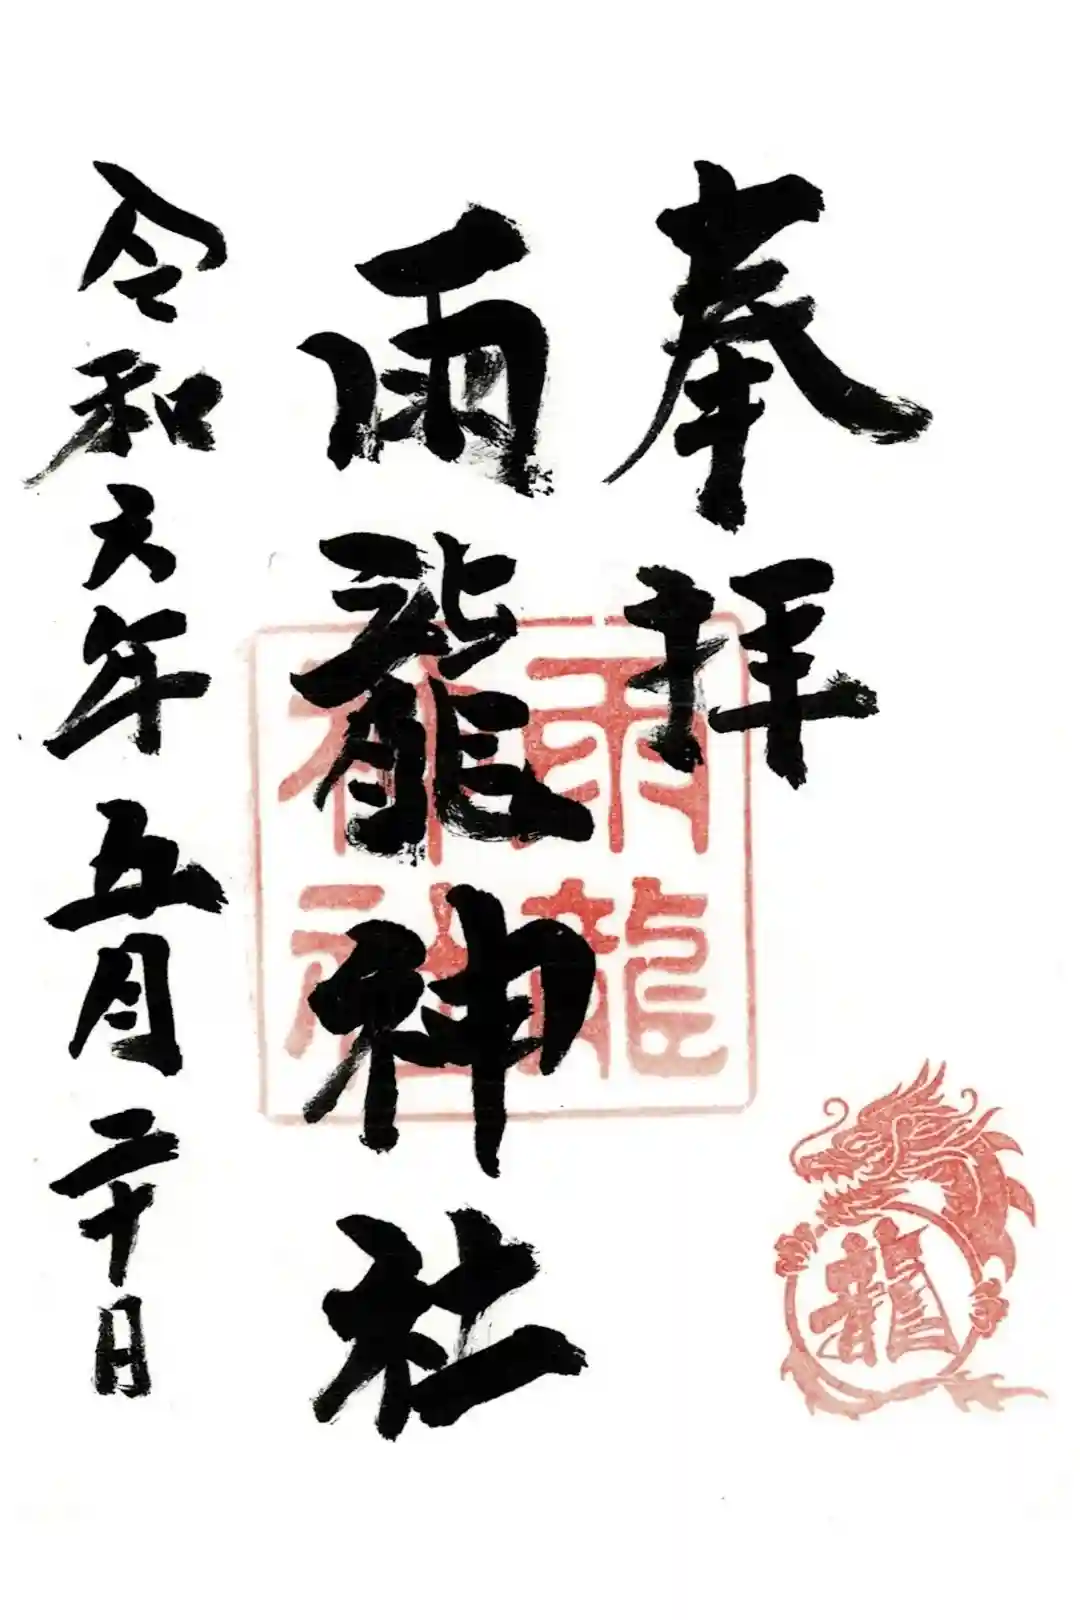 奉拝
雨龍神社
令和六年五月二十日
雨龍
神社
龍